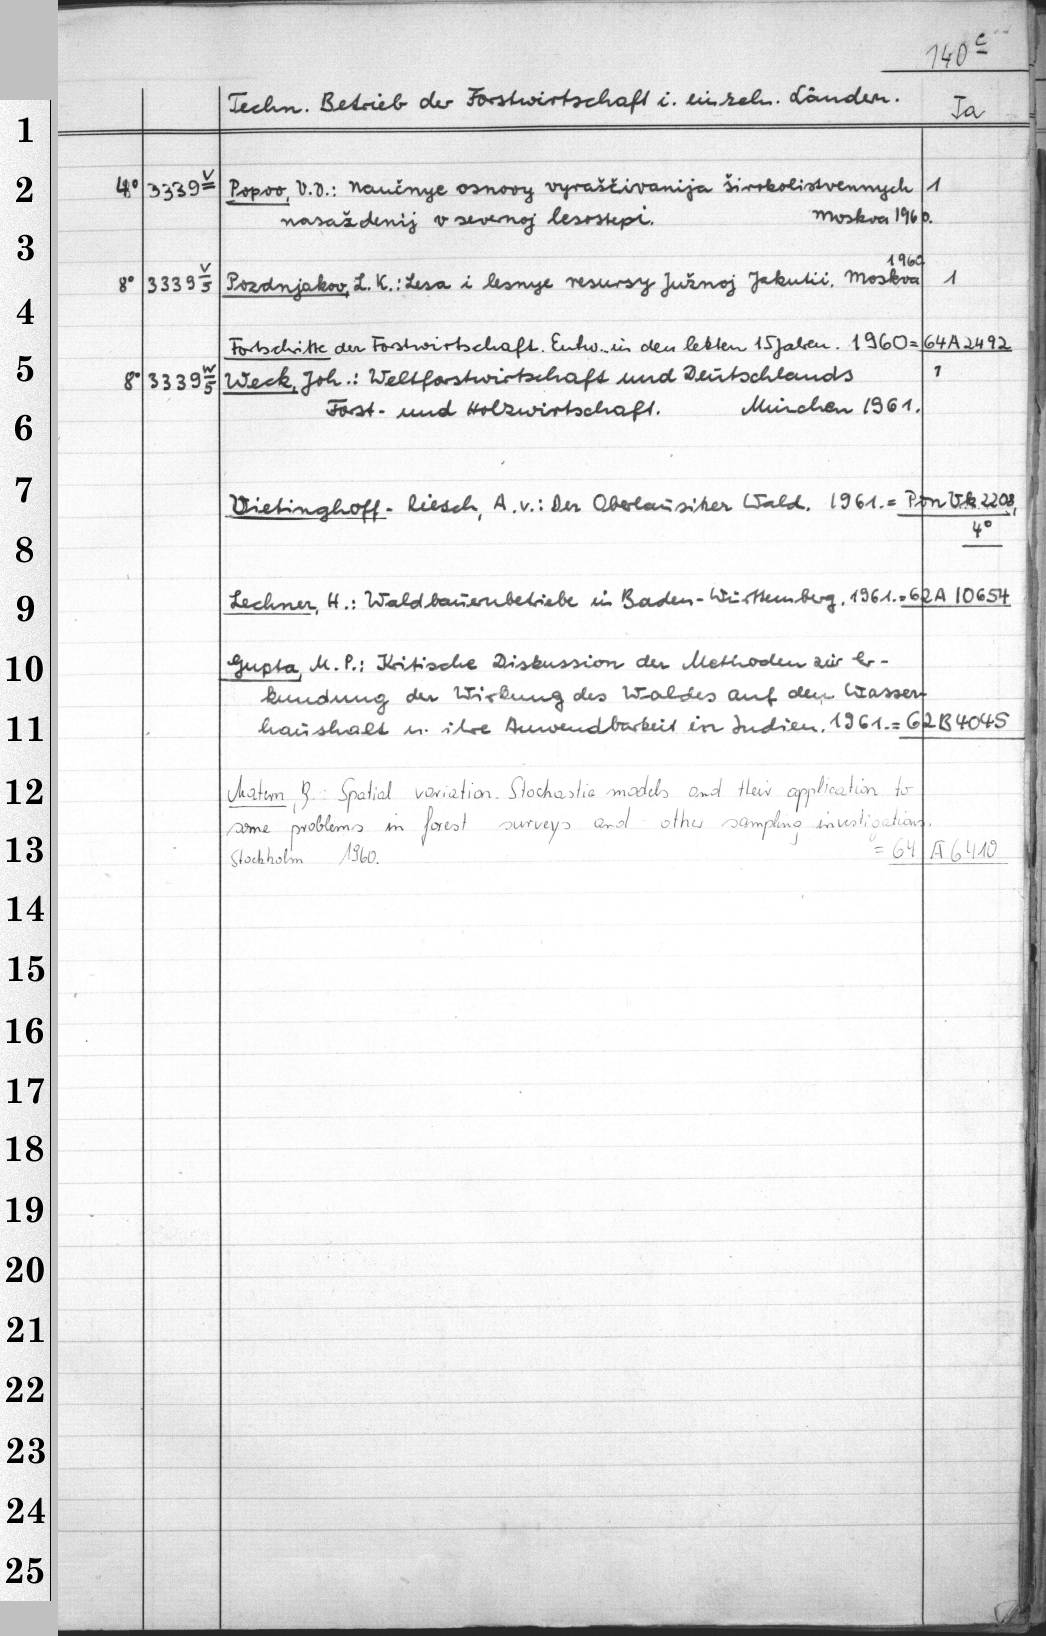 140 c
Techn. Betrieb der Forstwirtschaft i. einzeln. Ländern. Ja
1
2 4° 3339 V Popov, V.V.: Naučnye osnovy vyraščivanija širokolistvennych 1
nasaždenij v severnoj lesostepi. Moskva 1960.
3
1960
8° 3339 V/5 Pozdnjakov, L. K.: Lesa i lesnye resursy Južnoj Jakutii. Moskva 1
4
Fortschritte der Forstwirtschaft. Entw. in den letzten 15 Jahren. 1960 = 64A2492
5 8° 3339 W/5 Weck, Joh.: Weltforstwirtschaft und Deutschlands 1
Forst- und Holzwirtschaft. München 1961.
6
7 Vietinghoff-Riesch, A. v.: Der Oberlausitzer Wald. 1961. = Pon Vk 2208,
4°
8
9 Lechner, H.: Waldbauernbetriebe in Baden-Württemberg. 1961. = 62A 10654
10 Gupta, M. P.: Kritische Diskussion der Methoden zur Er-
kundung der Wirkung des Waldes auf den Wasser-
11 haushalt u. ihre Anwendbarkeit in Indien. 1961. = 62B4045
12 Matern, B.: Spatial variation. Stochastic models and their application to
some problems in forest surveys and other sampling investigations.
13 Stockholm 1960. = 64 A 6410
14
15
16
17
18
19
20
21
22
23
24
25